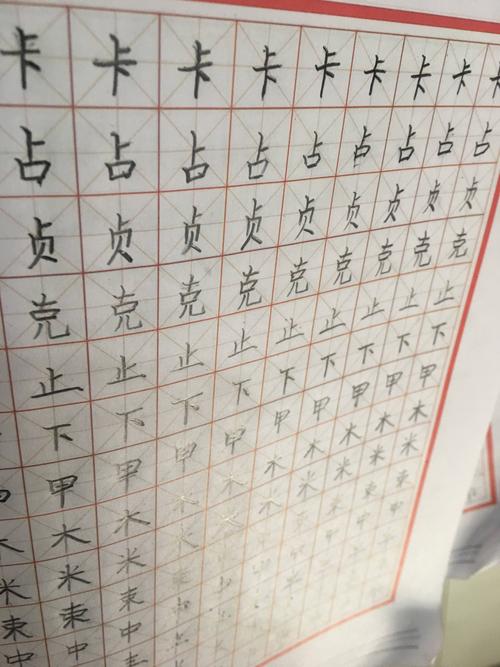 卡卡卡卡卡卡卡卡卡
占占占占占占占占占
贞贞贞贞贞贞贞贞贞
克克克克克克克克克
止止止止止止止止止
下下下下下下下下下
甲甲甲甲甲甲甲甲甲
木木木木木木木木木
米米米米米米米米
束束束束
中中中